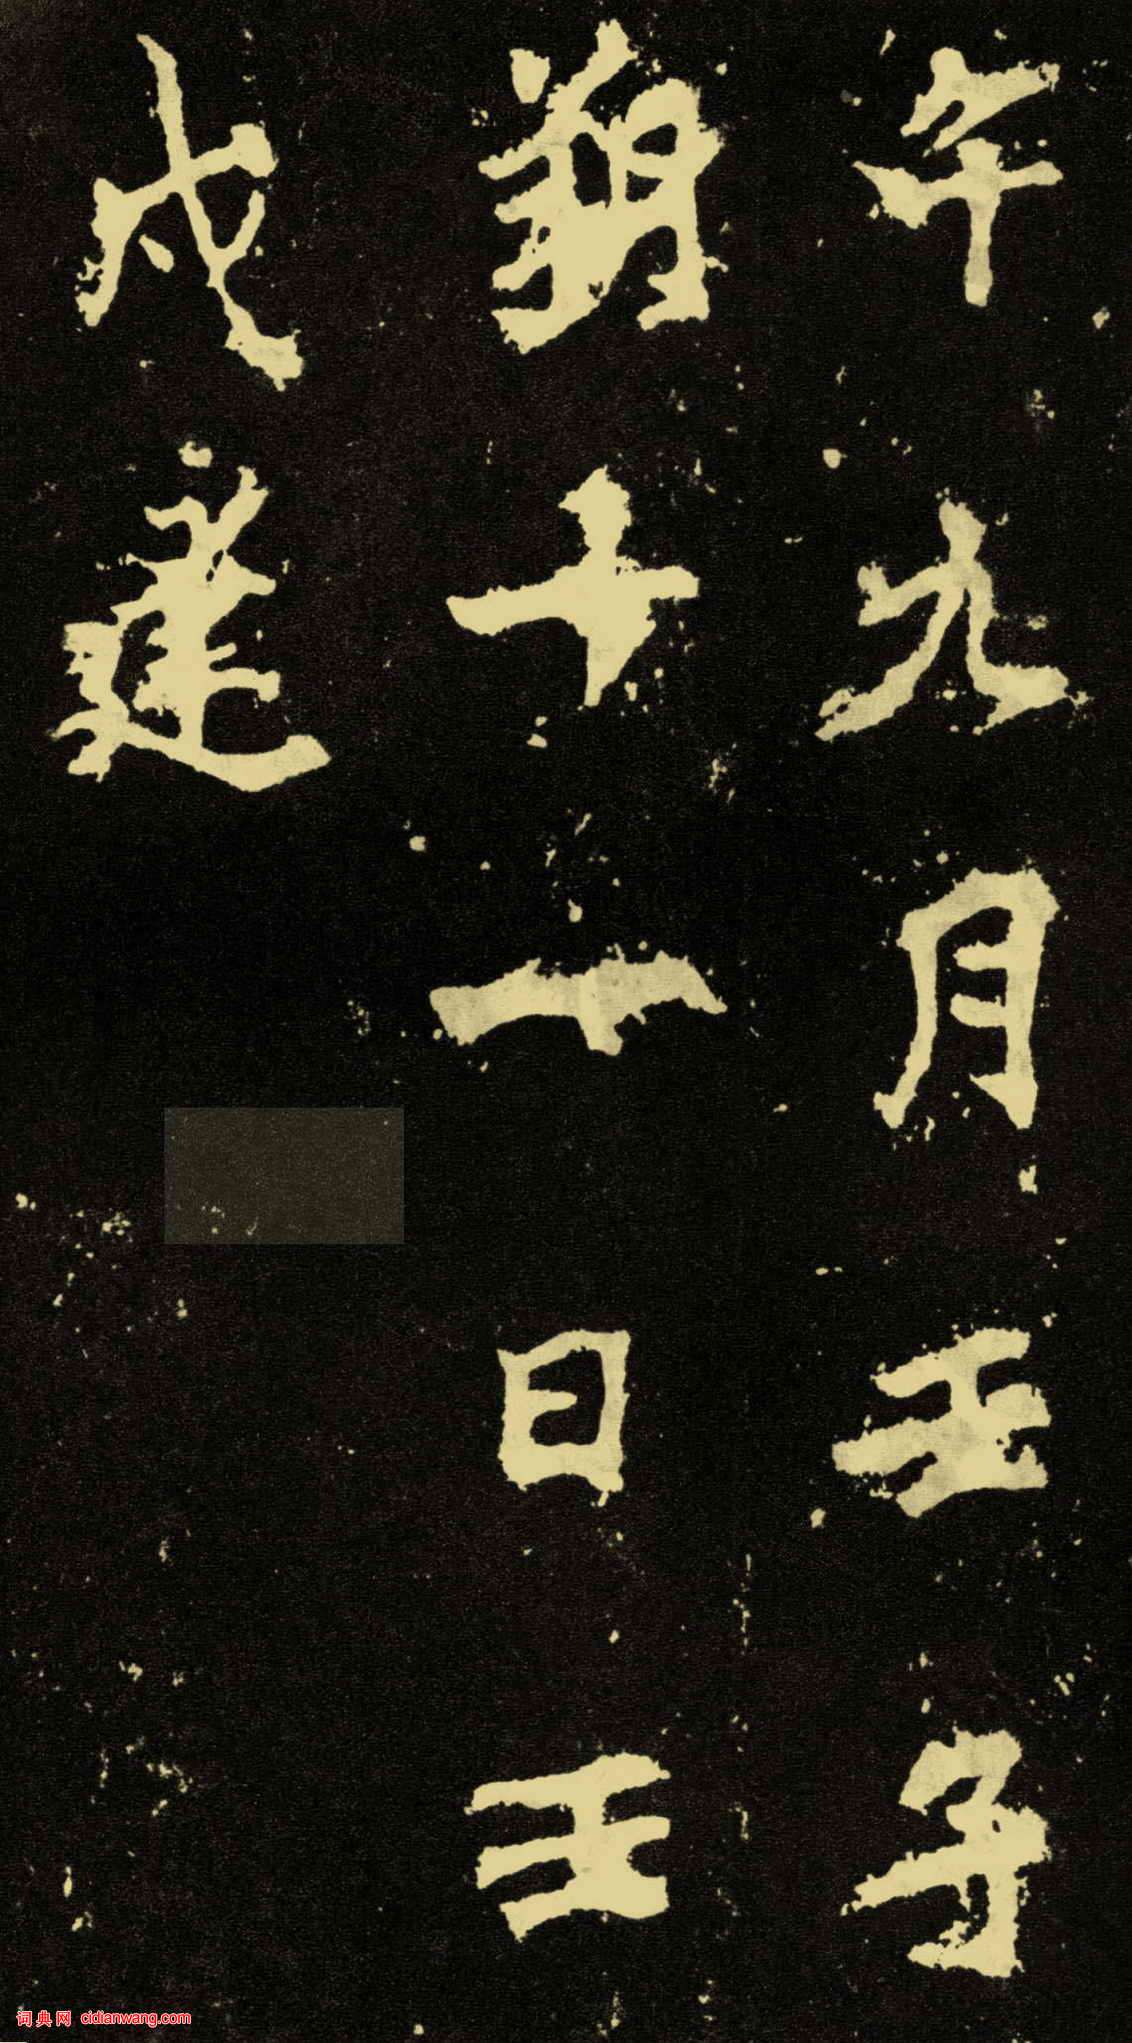 午九月壬子
朔十一日壬
戌建
词典网 cidianwang.com